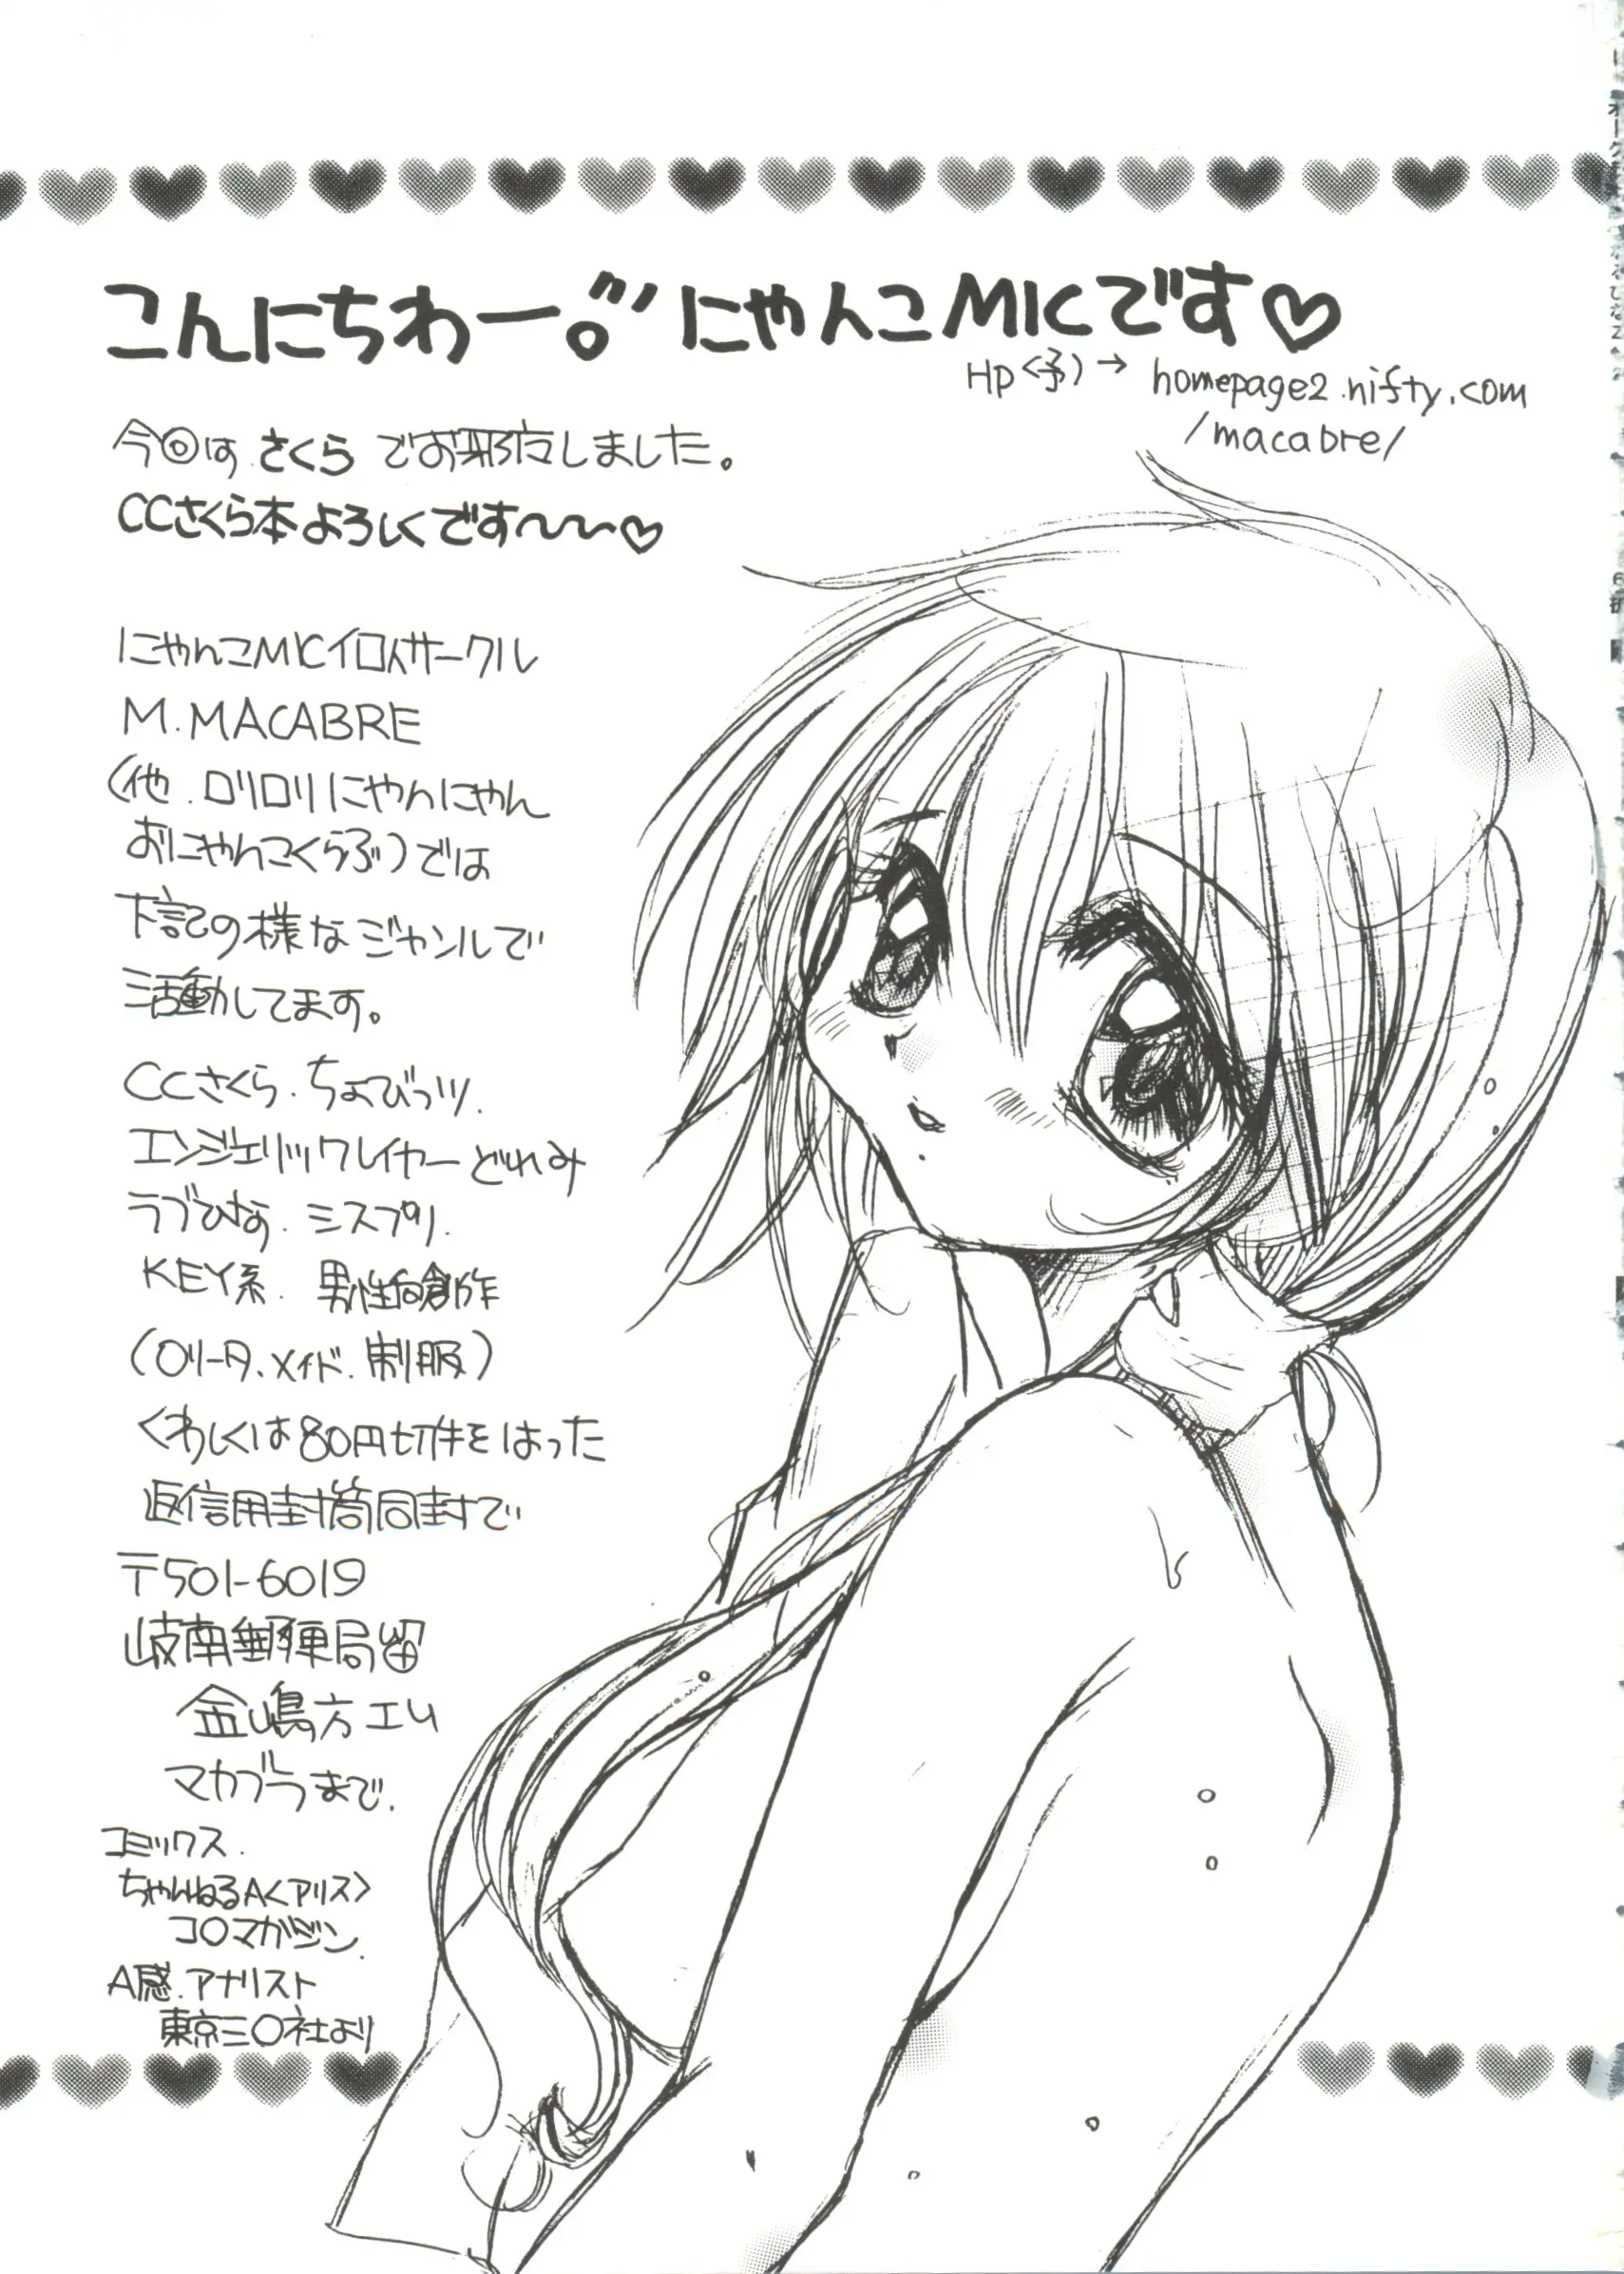 こんにちわー。にゃんこMICです♡
HP(予)→ homepage2.nifty.com
/macabre/
今回は さくら でお邪魔しました。
CCさくら本よろしくです〜〜♡
にゃんこMIC サークル
M.MACABRE
(他.ロリロリにゃんにゃん
おにゃんこくらぶ)では
下記の様なジャンルで
活動してます。
CCさくら.ちょびっツ.
エンジェリックレイヤー どれみ
ラブひな.シスプリ.
KEY系.男性向創作
(ロリータ.メイド.制服)
くわしくは80円切手をはった
返信用封筒同封で
〒501-6019
岐南郵便局留
金嶋方エム
マカブラまで.
コミックス.
ちゃんねるA<アリス>
コ〇マガジン.
A感.アナリスト
東京三〇社より